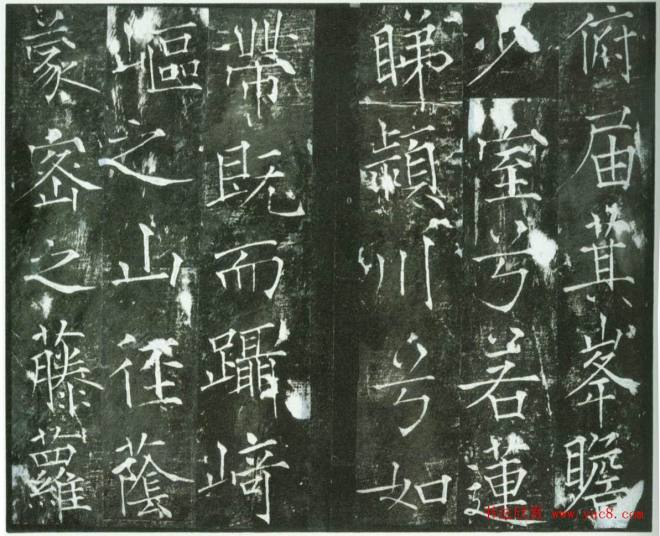 俯届箕峯瞻
少室兮若蓮
睇潁川兮如
帶既而躡崎
嶇之山徑蔭
蒙密之藤蘿
书法欣赏 www.yac8.com